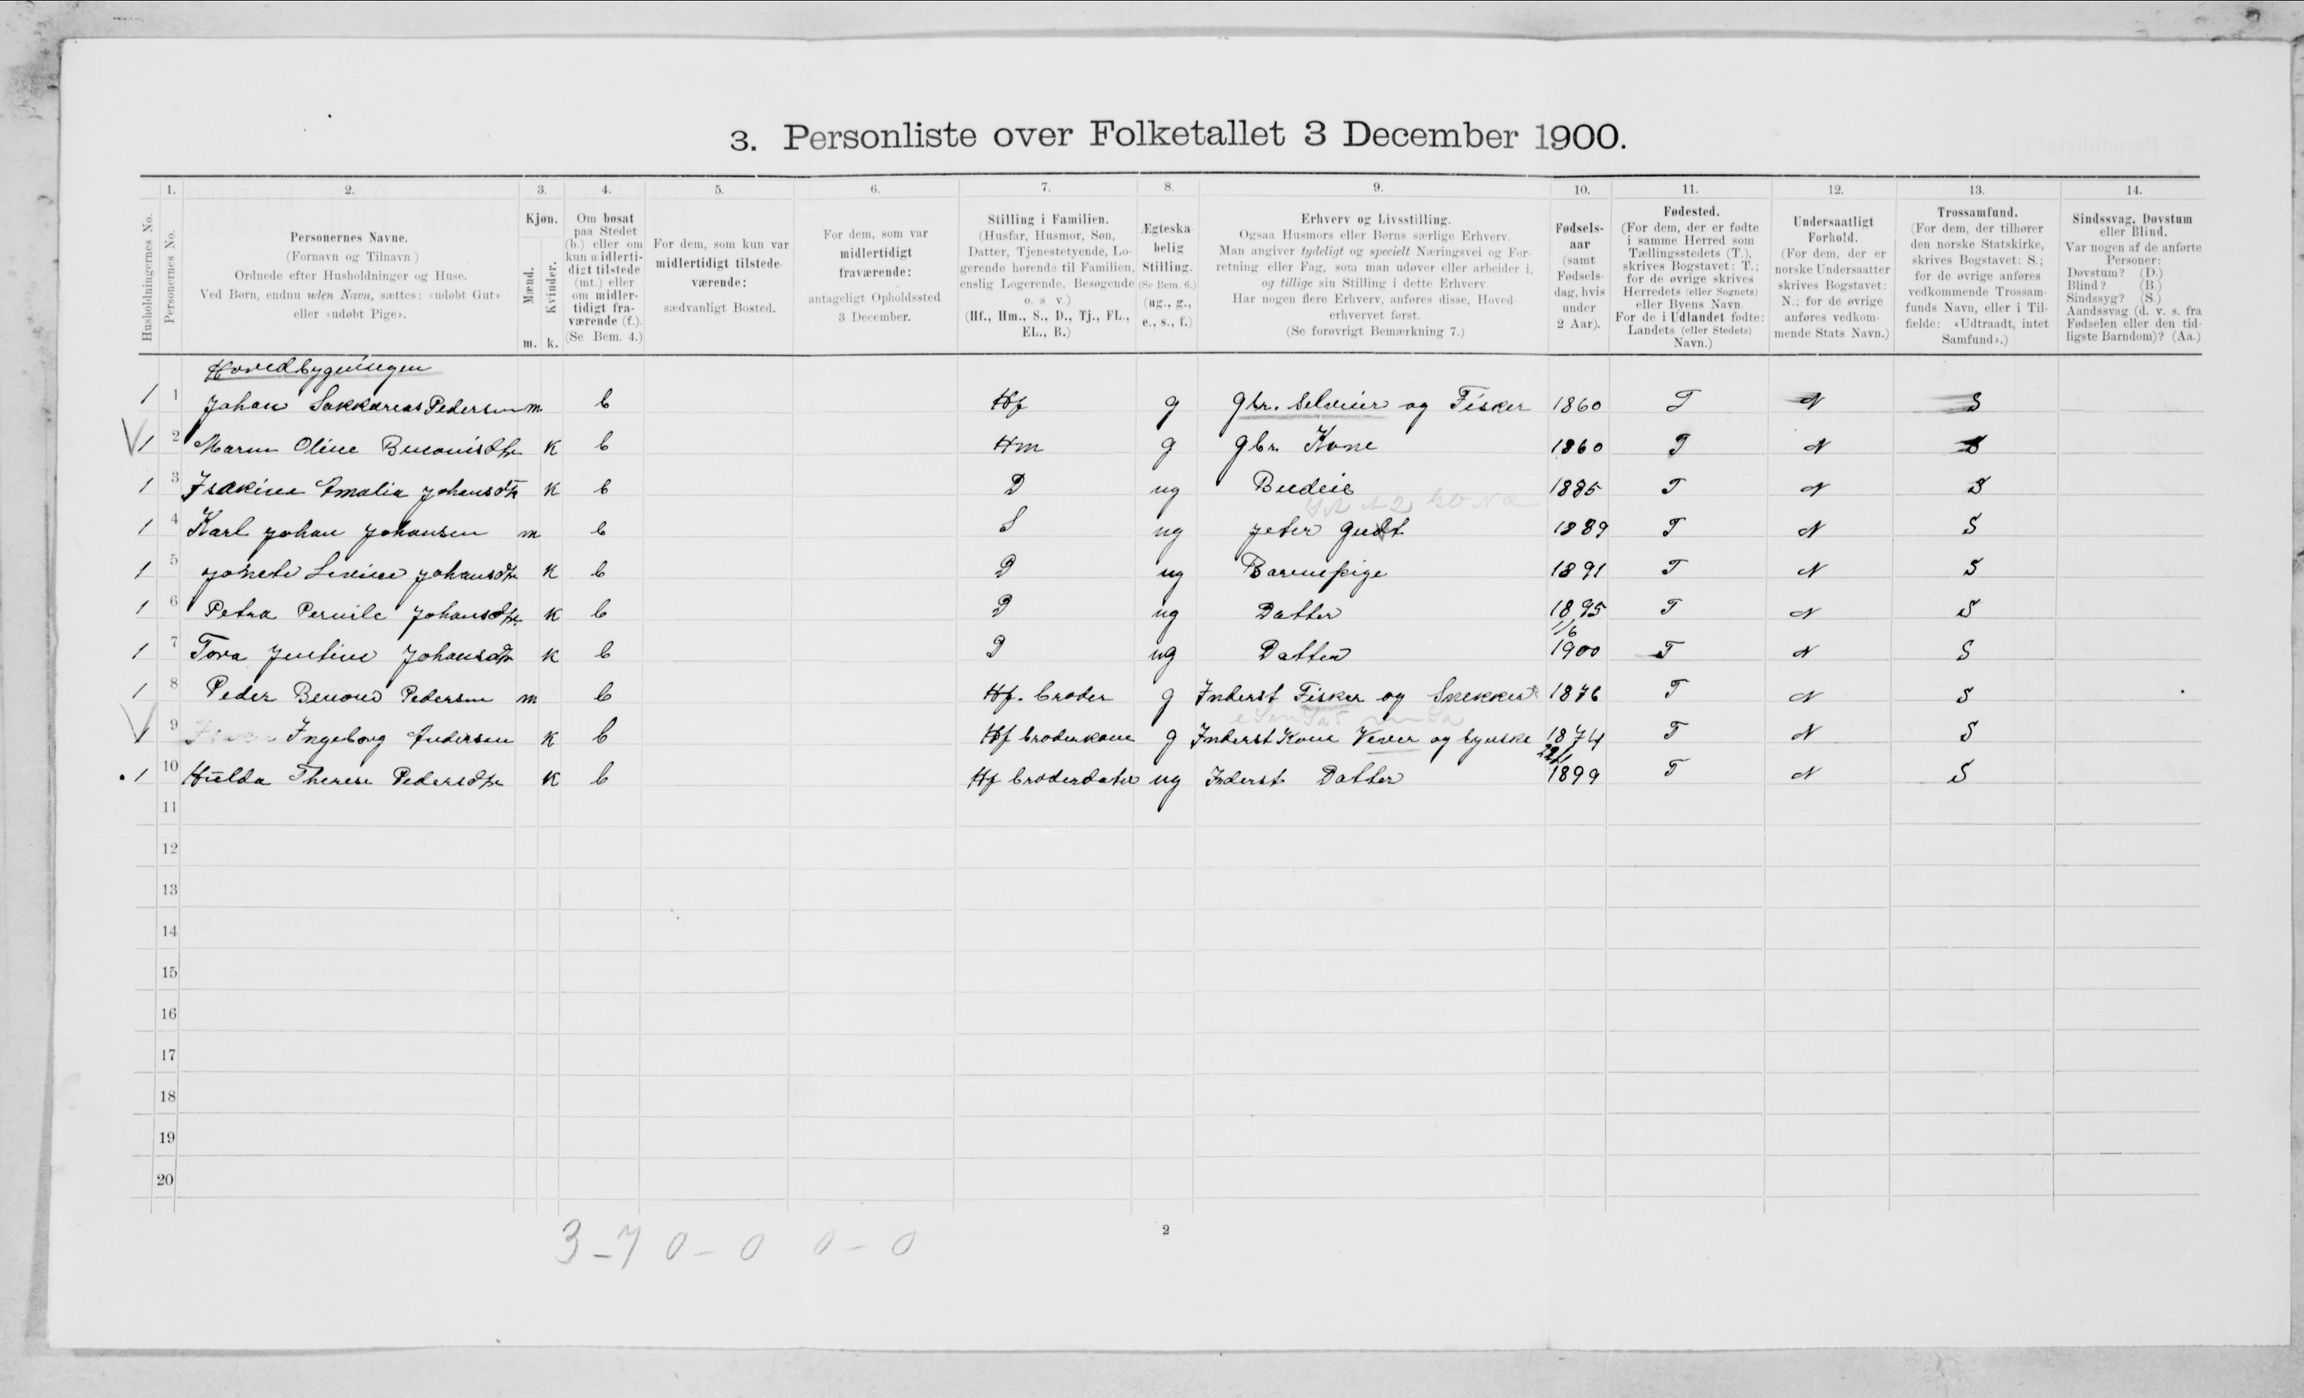 3. Personliste over Folketallet 3 December 1900.
1. 2. 3. 4. 5. 6. 7. 8. 9. 10. 11. 12. 13. 14.
Husholdningernes No.
Personernes No.
Personernes Navne.
(Fornavn og Tilnavn)
Ordnede efter Husholdninger og Huse.
Ved Børn, endnu uden Navn, sættes: «udøbt Gut»
eller «udøbt Pige».
Kjøn.
Mænd.
Kvinder.
m. k.
Om bosat
paa Stedet
(b.) eller om
kun midlerti-
digt tilstede
(mt.) eller
om midler-
tidigt fra-
værende (f.).
(Se Bem. 4.)
For dem, som kun var
midlertidigt tilstede-
værende:
sædvanligt Bosted.
For dem, som var
midlertidigt
fraværende:
antageligt Opholdssted
3 December.
Stilling i Familien.
(Husfar, Husmor, Søn,
Datter, Tjenestetyende, Lo-
gerende hørende til Familien,
enslig Logerende, Besøgende
o. s v.)
(Hf., Hm., S., D., Tj., FL.,
EL., B.)
Ægteska-
belig
Stilling.
(Se Bem. 6.)
(ug., g.,
e., s., f.)
Erhverv og Livsstilling.
Ogsaa Husmors eller Børns særlige Erhverv.
Man angiver tydeligt og specielt Næringsvei og For-
retning eller Fag, som man udøver eller arbeider i,
og tillige sin Stilling i dette Erhverv
Har nogen flere Erhverv, anføres disse, Hoved-
erhvervet først.
(Se forøvrigt Bemærkning 7.)
Fødsels-
aar
(samt
Fødsels-
dag, hvis
under
2 Aar).
Fødested.
(For dem, der er fødte
i samme Herred som
Tællingsstedets (T.),
skrives Bogstavet: T.;
for de øvrige skrives
Herredets (eller Sognets)
eller Byens Navn
For de i Udlandet fødte:
Landets (eller Stedets)
Navn.)
Undersaatligt
Forhold.
(For dem, der er
norske Undersaatter
skrives Bogstavet:
N.; for de øvrige
anføres vedkom-
mende Stats Navn.)
Trossamfund.
(For dem, der tilhører
den norske Statskirke,
skrives Bogstavet: S.;
for de øvrige anføres
vedkommende Trossam-
funds Navn, eller i Til-
fælde: «Udtraadt, intet
Samfund».)
Sindssvag, Døvstum
eller Blind.
Var nogen af de anførte
Personer:
Døvstum? (D.)
Blind? (B.)
Sindssyg? (S.)
Aandssvag (d. v. s. fra
Fødselen eller den tid-
ligste Barndom)? (Aa.)
Hovedbygningen
1 1 Johan Sakkarias Pedersen m b Hf g gbr. Selveier og Fisker 1860 T N S
1 2 Maren Oline Benonisdtr k b Hm g gbr. Kone 1860 T N S
1 3 Isakine Amalia Johansdtr k b D ug Budeie 1885 T N S
1 4 Karl Johan Johansen m b S ug jeter gut 1889 T N S
1 5 Johansdtr k b D ug Barnepige 1891 T N S
1 6 Petra Pernile Johansdtr k b D ug Datter 1895 T N S
1 7 Tora Justine Johansdtr k b D ug Datter 1/6 1900 T N S
1 8 Peder Benoni Pedersen m b Hf. broder g Inderst Fisker og Snekker 1876 T N S
1 9 Ingeborg Andersen k b Hf broderkone g Inderst Kone Vever og 1874 T N S
1 10 Hulda Therese Pedersdtr k b Hf broderdater ug Inderst Datter 1899 T N S
11
12
13
14
15
16
17
18
19
20
3-7 0-0 0-0
2